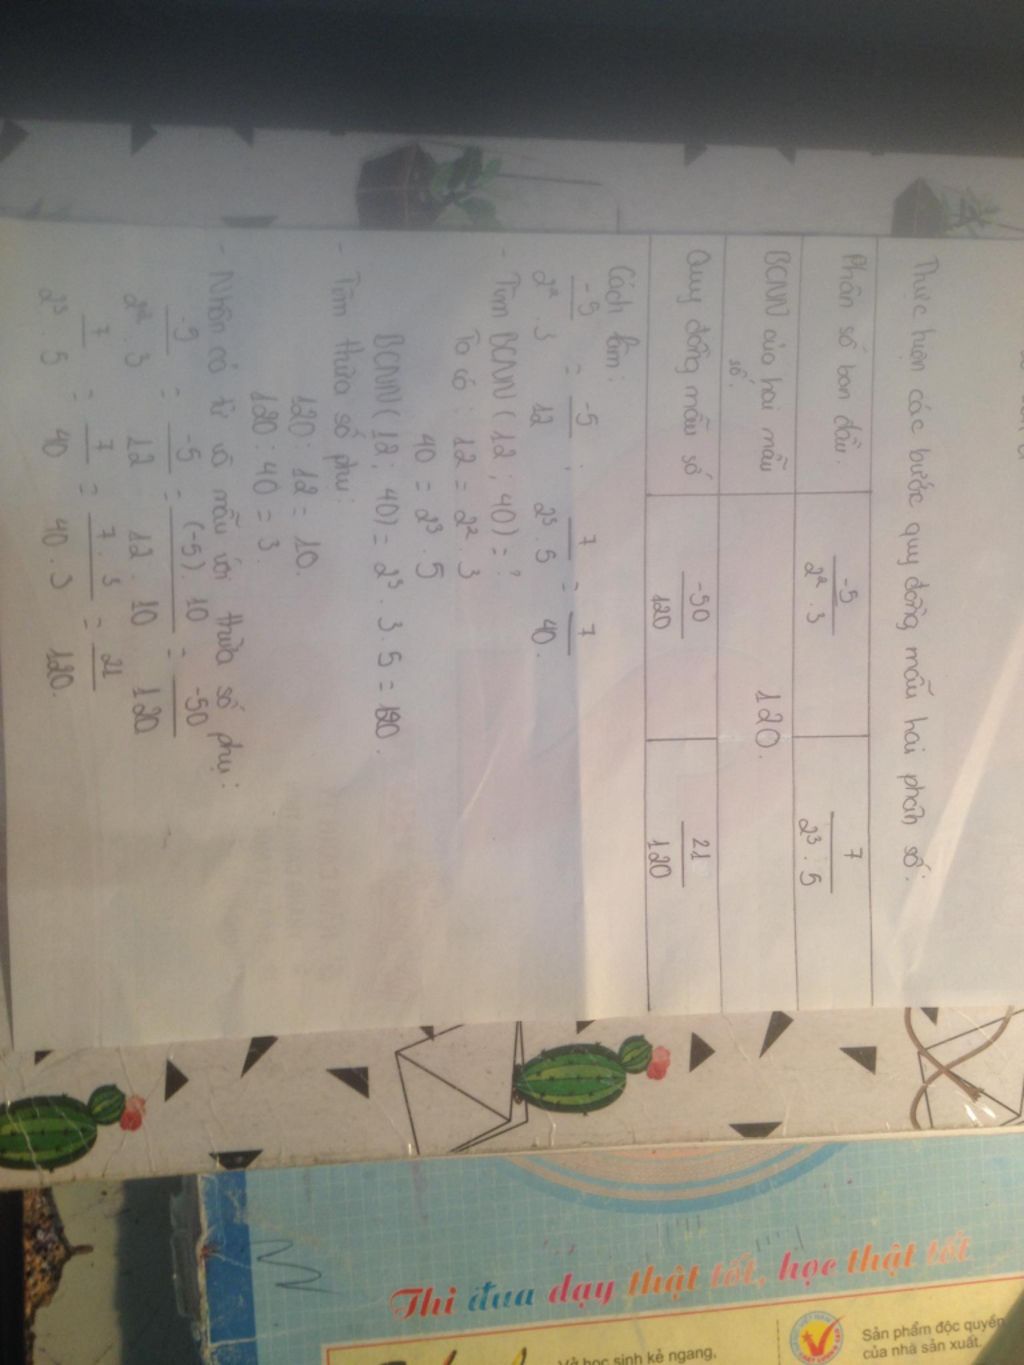 Thực hiện các bước quy đồng mẫu hai phân số:
Phân số ban đầu. -5/2² . 3 7/2³ . 5
BCNN của hai mẫu số. 120.
Quy đồng mẫu số -50/120 21/120
Cách làm:
-5/2² . 3 = -5/12 ; 7/2³ . 5 = 7/40.
- Tìm BCNN (12 ; 40) = ?
Ta có : 12 = 2² . 3
40 = 2³ . 5
BCNN (12 ; 40) = 2³ . 3 . 5 = 120.
- Tìm thừa số phụ:
120 : 12 = 10.
120 : 40 = 3.
- Nhân cả tử và mẫu với thừa số phụ:
/2² . 3 = -5/12 = (-5) . 10/12 . 10 = -50/120
7/2³ . 5 = 7/40 = 7 . 3/40 . 3 = 21/120.
Thi đua dạy thật tốt, học thật tốt
Sản phẩm độc quyền
của nhà sản xuất.
học sinh kẻ ngang,